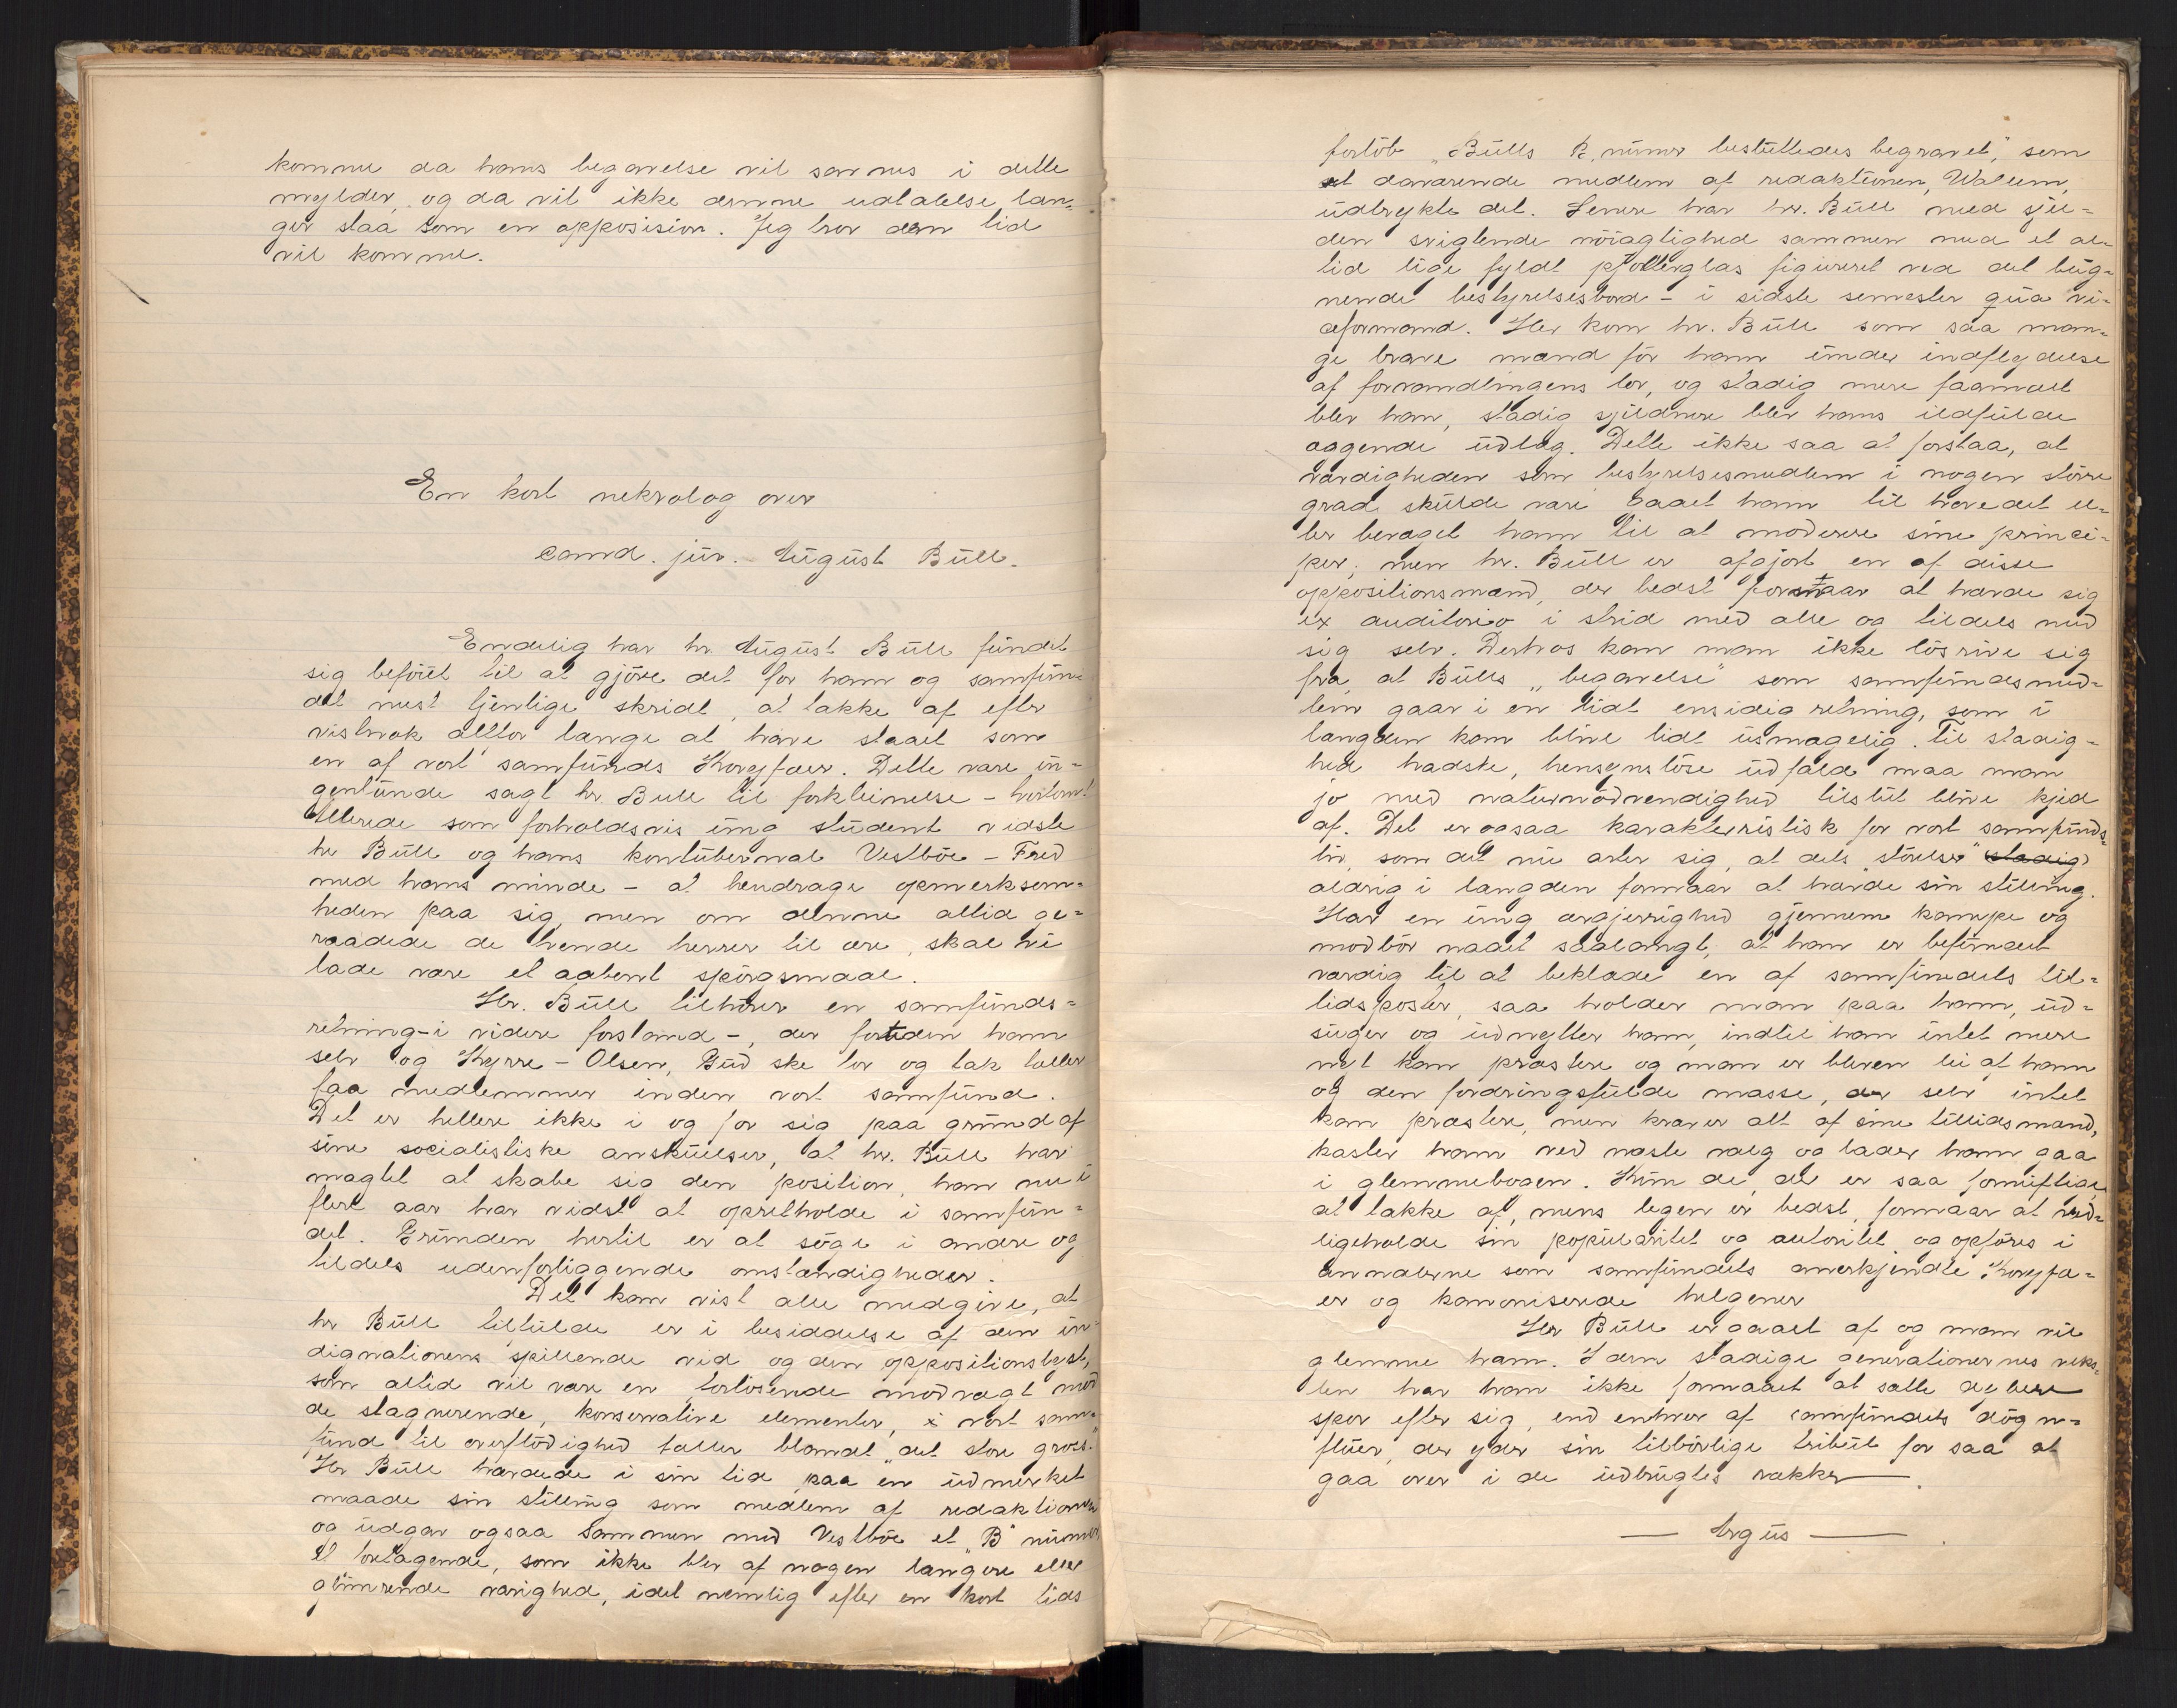 komme da hans begavelse vil savnes i dette
mylder, og da vil ikke denne udtalelse læn-
ger staa som en opposision. Jeg tror den tid
vil komme.
En kort nekrolog over
cand. jür. Aügüst Büll.
Endelig har hr. Aügüst Büll fündet
sig beföiet til at gjöre det for ham og samfün-
det mest tjenlige skridt, at takke af efter
vistnok altfor længe at have staaet som
en af vort samfünds Koryfæer. Dette være in-
genlünde sagt hr. Bull til forkleinelse - tvertom!
Allerede som forholdsvis üng stüdent vidste
hr Büll og hans kontübernal Vestböe - Fred
med hans minde - at hendrage opmerksom-
heden paa sig, men om denne altid ge-
raadede de tvende herrer til ære, skal vi
lade være et aabent spörgsmaal.
Hr. Büll tilhörer en samfünds-
retning - i videre forstand -, der foruden ham
selv og Kyrre - Olsen, Güd ske lov og tak tæller
faa medlemmer inden vort samfünd.
Det er hellere ikke i og for sig paa gründ af
sine socialistiske anskülser, at hr. Büll har
magtet at skabe sig den position, han nu i
flere aar har vidst at opretholde i samfün-
det. Gründen hertil er at söge i andre og
tildels udenforliggende omstændigheder.
Det kan vist alle medgive, at
hr Büll tilfülde er i besiddelse af den in-
dignationens spillende vid og den oppositionslyst,
som altid vil være en forlösende modvægt mod
de stagnerende, konservative elementer, i vort sam-
fünd til overflödighed tæller blandt "det store gros."
Hr Büll hævdede i sin tid paa en üdmerket
maade sin stilling som medlem af redaktionen
og üdgav ogsaa sammen med Vestböe et "B" nümer
et foretagende, som ikke blev af nogen længere eller
glimrende varighed, idet nemlig efter en kort tids
forlöb "Bülls B, nümer beslüttedes begravet," som
et daværende medlem af redaktionen, Wallem,
üdtrykte det. Senere har hr. Büll med sjel-
den svigtende nöiagtighed sammen med et al-
tid lige fyldt pjolterglas figureret ved det büg-
nende bestyrelsesbord - i sidste semester qüa vi-
ceformand. Her kom hr. Büll som saa man-
ge brave mænd för ham ünder indflydelse
af forvandlingens lov, og stadig mere faamælt
blev han, stadig sjeldnere blev hans ildfülde
æggende üdlæg. Dette ikke saa at forstaa, at
værdigheden som bestyrelsesmedlem i nogen större
grad skülde være gaaet ham til hovedet el-
ler bevæget ham til at moderere sine princi-
per; men hr. Büll er afgjort en af disse
oppositionsmænd, der bedst forstaar at hævde sig
ex auditorio i strid med alle og tildels med
sig selv. Derhos kan man ikke lösrive sig
fra, at Bülls "begavelse" som samfündsmed-
lem gaar i en lidt ensidig retning, som i
længden kan blive lidt üsmagelig. Til stadig-
hed hadske, hensynslöse üdfald maa man
jo med natürnödvendighed tilslüt blive kjed
af. Det er ogsaa karakteristisk for vort samfünds-
liv, som det nü arter sig, at dets "störelser" stadig
aldrig i længden formaar at hævde sin stilling.
Har en üng ærgjerrighed gjennem kampe og
modbör naaet saalangt, at han er befündet
værdig til at beklæde en af samfündets til-
lidsposter, saa holder man paa ham, üd-
süger og üdnytter ham, indtil han intet mere
nyt kan præstere og man er bleven lei af ham
og den fordringsfülde masse, der selv intet
kan præstere, men kræver alt af sine tillidsmænd,
kaster ham ved næste valg og lader ham gaa
i glemmebogen. Kün de, der er saa fornüftige
at takke af, mens legen er bedst, formaar at ved-
ligeholde sin popülaritet og autoritet og opföres i
annalerne som samfündets anerkjendte Koryfæ-
er og kanoniserede helgener
Hr Büll er gaaet af og man vil
glemme ham. I den stadige generationernes veks-
len har han ikke formaaet at sætte dybere
spor efter sig, end enhver af samfündets dögn-
flüer, der yder sin tilbörlige tribüt for saa at
gaa over i de üdbrügtes rækker.
Argüs